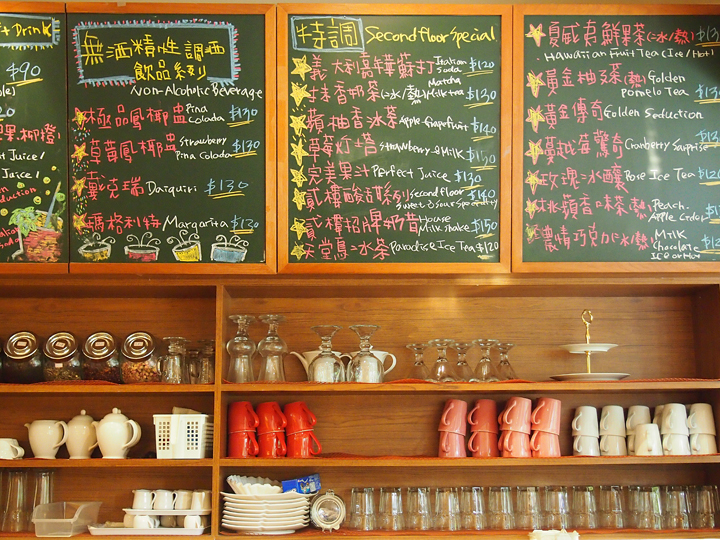 t Drink
$90
Juice/
Juice!
無酒精性調酒
飲品系列
Non-Alcoholic Beverage
極品鳳椰盅 Pina Colada $130
草莓鳳椰盅 Strawberry Pina Colada $130
戴克瑞 Daiquiri $130
瑪格利特 Margarita $130
特調 Second floor Special
義大利嘉年華蘇打 Italian Soda $120
抹香奶茶(冰/熱) Matcha Milk tea $130
蘋柚香冰茶 Apple Grapefruit $140
草莓灯塔 Strawberry & Milk $150
完美果汁 Perfect Juice $130
貳樓酸甜系列 Second floor Sweet & Sour Specialty $140
貳樓招牌奶昔 House Milk shake $150
天堂鳥冰茶 Paradise Ice Tea $120
夏威夷鮮果茶(冰/熱)
Hawaiian Fruit Tea (Ice/Hot)
黃金柚子茶(熱) Golden Pomelo Tea
黃金傳奇 Golden Seduction
蔓越莓驚奇 Cranberry Surprise
玫瑰冰釀 Rose Ice Tea
桃蘋香味茶(熱) Peach Apple
濃情巧克力(冰/熱) Milk Chocolate Ice or Hot